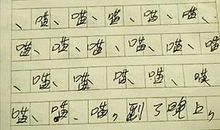 、喵、喵、喵、喵、喵
喵、喵、喵、喵、喵、喵
、喵、喵、喵、喵、喵
喵、喵、喵，到了晚上，